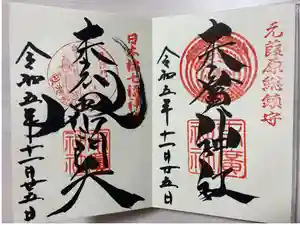 元葭原総鎮守
末廣神社
令和五年十一月廿五日
日本橋七福神
毘沙門天
令和五年十一月廿五日